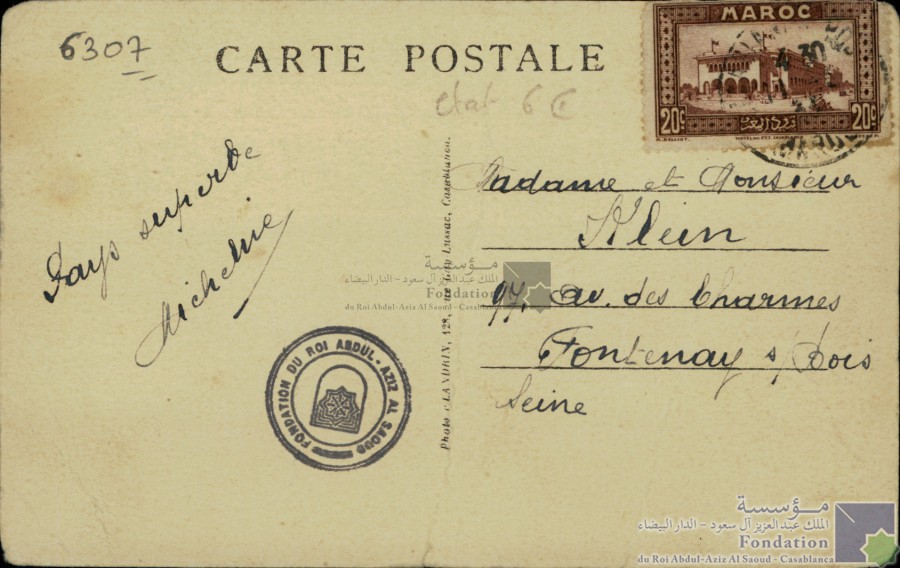 6307
CARTE POSTALE
MAROC
20c 20c
etat 6
Pays superbe
Micheline
Madame et Monsieur
Klein
97, av. des Charmes
Fontenay s/Bois
Seine
Photo FLANDRIN, 128, Lussac, Casablanca.
FONDATION DU ROI ABDUL-AZIZ AL SAOUD
مؤسسة
الملك عبد العزيز آل سعود - الدار البيضاء
Fondation
du Roi Abdul-Aziz Al Saoud - Casablanca
مؤسسة
الملك عبد العزيز آل سعود - الدار البيضاء
Fondation
du Roi Abdul-Aziz Al Saoud - Casablanca